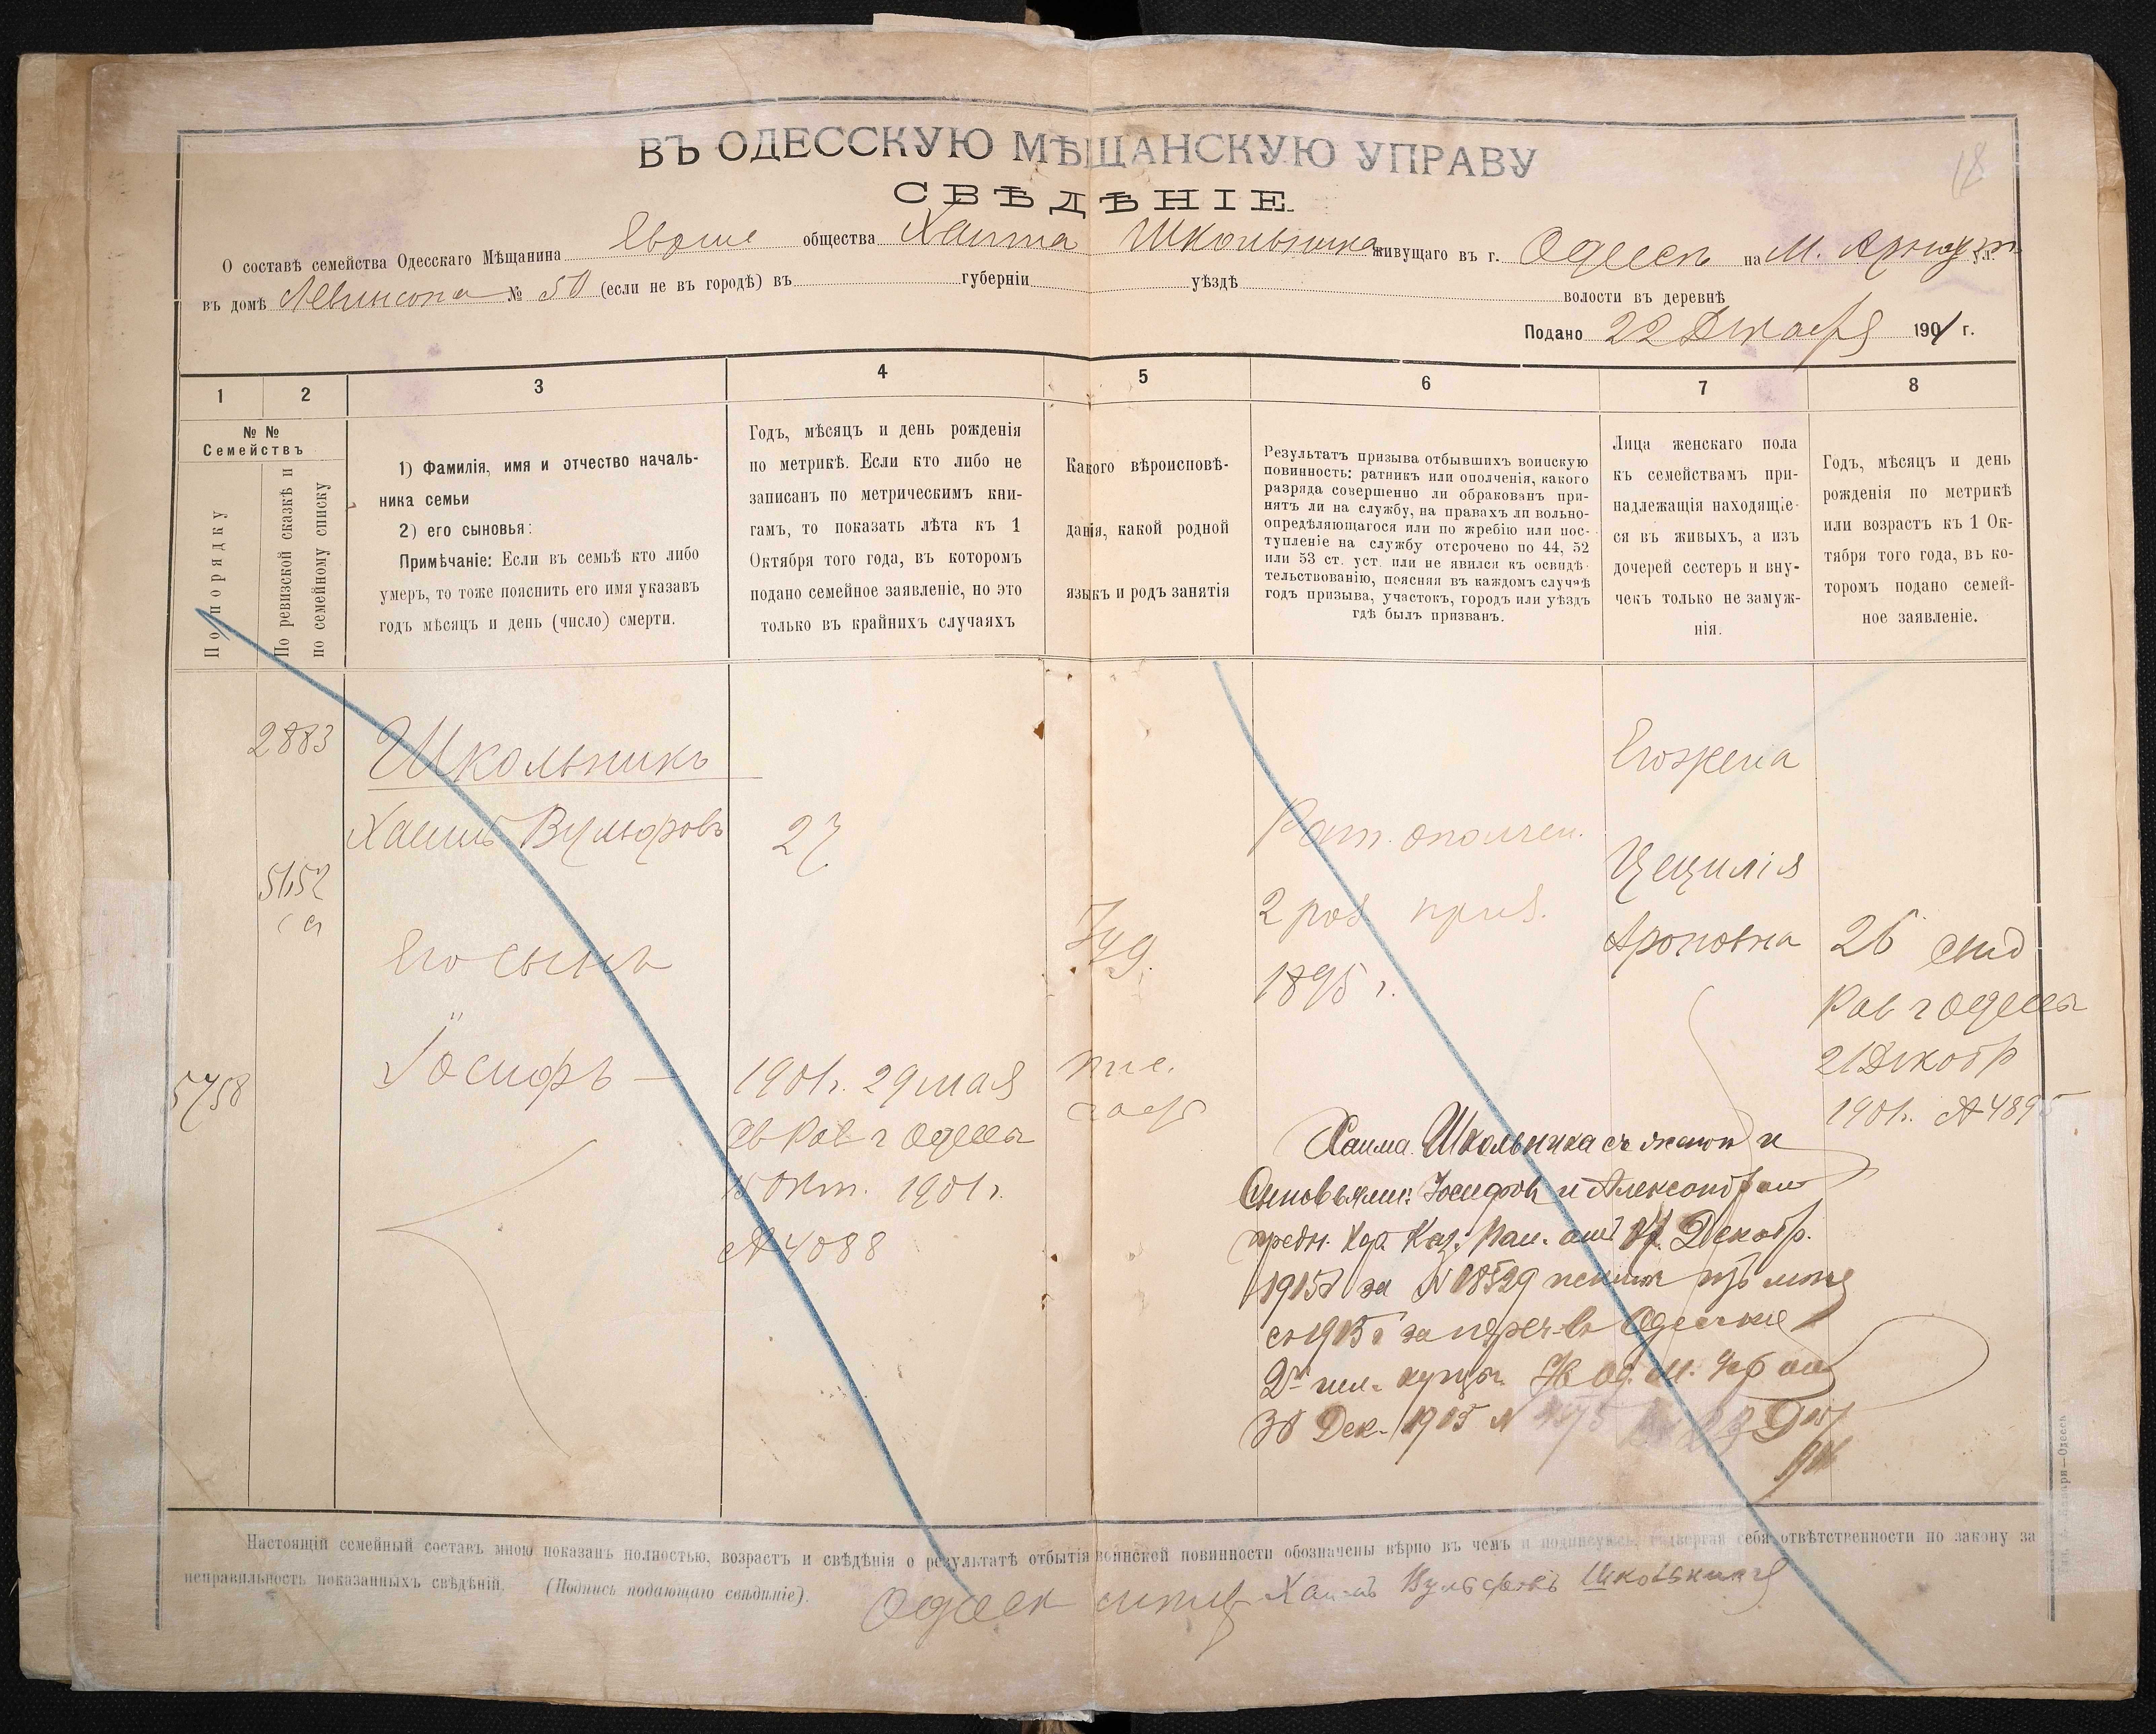 18
ВЪ ОДЕССКУЮ МѢЩАНСКУЮ УПРАВУ
СВѢДѢНІЕ
О составѣ семейства Одесскаго Мѣщанина общества Хаима Школьника живущаго въ г. Одессѣ на М. Арнаут ул.
въ домѣ Левинсона № 50 (если не въ городѣ) въ губерніи уѣздѣ волости въ деревнѣ
Подано 22 Декабря 1901 г.
1 2 3 4 5 6 7 8
№ №
Семействъ
По порядку
По ревизской сказкѣ и
по семейному списку
1) Фамилія, имя и отчество началь-
ника семьи
2) его сыновья:
Примѣчаніе: Если въ семьѣ кто либо
умеръ, то тоже пояснить его имя указавъ
годъ мѣсяцъ и день (число) смерти.
Годъ, мѣсяцъ и день рожденія
по метрикѣ. Если кто либо не
записанъ по метрическимъ кни-
гамъ, то показать лѣта къ 1
Октября того года, въ которомъ
подано семейное заявленіе, но это
только въ крайнихъ случаяхъ
Какого вѣроисповѣ-
данія, какой родной
языкъ и родъ занятія
Результатъ призыва отбывшихъ воинскую
повинность: ратникъ или ополченія, какого
разряда совершенно ли обракованъ при-
нятъ ли на службу, на правахъ ли вольно-
опредѣляющагося или по жребію или пос-
тупленіе на службу отсрочено по 44, 52
или 53 ст. уст. или не явился къ освидѣ-
тельствованію, поясняя въ каждомъ случаѣ
годъ призыва, участокъ, городъ или уѣздъ
гдѣ былъ призванъ.
Лица женскаго пола
къ семействамъ при-
надлежащія находящіе-
ся въ живыхъ, а изъ
дочерей сестеръ и вну-
чекъ только не замуж-
нія.
Годъ, мѣсяцъ и день
рожденія по метрикѣ
или возрастъ къ 1 Ок-
тября того года, въ ко-
торомъ подано семей-
ное заявленіе.
2883
Школьникъ
Хаимъ Вульфовъ 27
5652
Его сынъ
Іосифъ —
5758
1901г. 29 мая
Рав г Одессы
15 Окт. 1901 г.
№ 4088
Іуд.
Рат. ополчен.
2 раз. приз.
1895 г.
Его жена
Цецилія
Ароновна
26
Рав г Одессы
21 Декабр
1901г. № 4895
Хаима Школьника съ женою и
Сыновьями: Іосифом и Александром
Каз. Пал. от Декабр.
1915 за № 18529
съ 1915 г за переч. въ Одесские
2й гил. купцы
30 Дек. 1915 №
Настоящій семейный составъ мною показанъ полностью, возрастъ и свѣдѣнія о результатѣ отбытія воинской повинности обозначены вѣрно въ чемъ и подписуюсь, подвергая себя отвѣтственности по закону за
неправильность показанныхъ свѣдѣній. (Подпись подающаго свѣдѣніе).
Хаимъ Вульфовъ Школьникъ